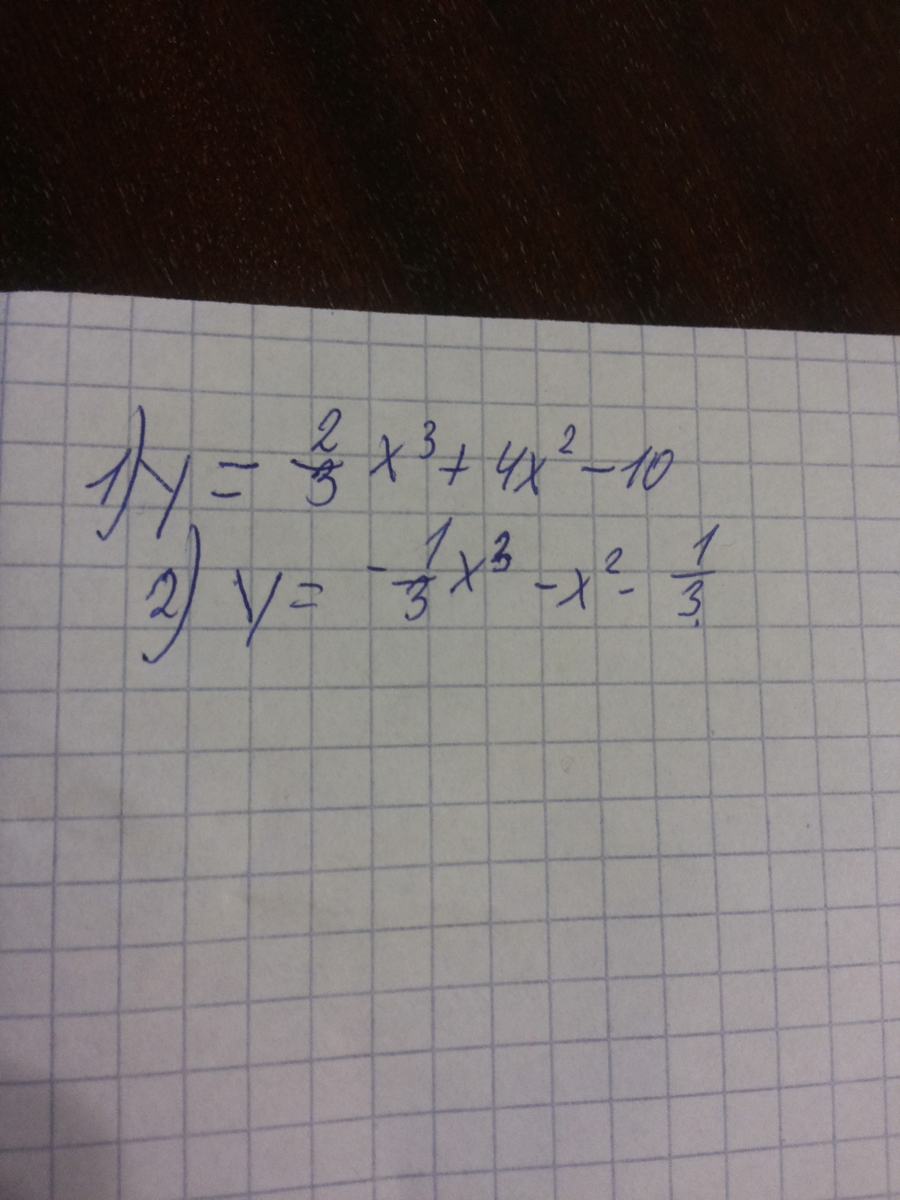 1) y = 2/3 x³ + 4x² - 10
2) y = -1/3 x³ - x² - 1/3